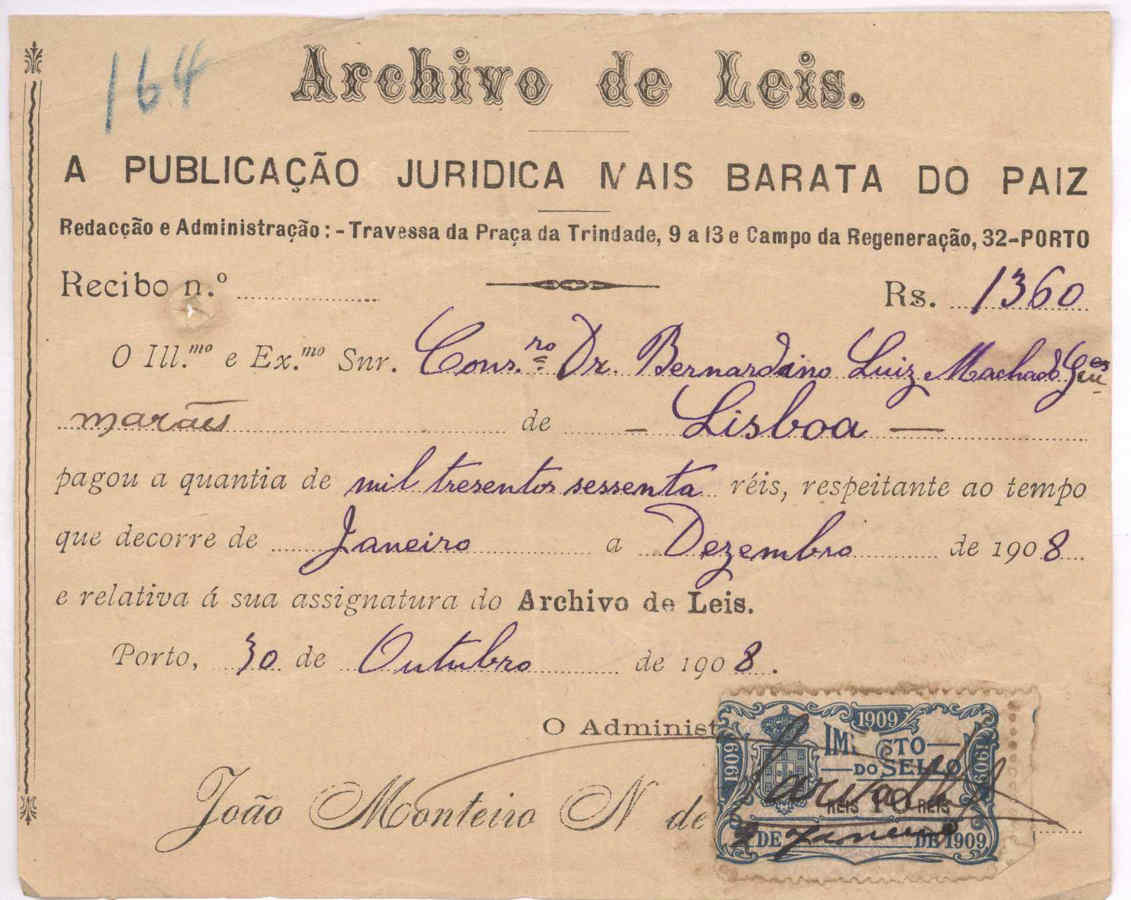 164
Archivo de Leis.
A PUBLICAÇÃO JURIDICA MAIS BARATA DO PAIZ
Redacção e Administração: - Travessa da Praça da Trindade, 9 a 13 e Campo da Regeneração, 32-PORTO
Recibo n.º Rs. 1360
O Ill.mo e Ex.mo Snr. Cons.ro Dr. Bernardino Luiz Machado Gui
marães de - Lisboa -
pagou a quantia de mil tresentos sessenta réis, respeitante ao tempo
que decorre de Janeiro a Dezembro de 1908
e relativa á sua assignatura do Archivo de Leis.
Porto, 30 de Outubro de 1908.
O Administ
João Monteiro N de Carvalho
1909
1909
1909
IMPOSTO
DO SELLO
REIS 10 REIS
2 DE Janeiro DE 1909